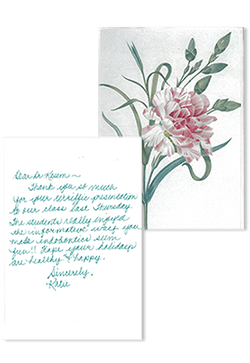 Dear Dr. Keem ~
Thank you so much
for your terrific presentation
to our class last Thursday.
The students really enjoyed
the informative way you
make endodontics seem
fun!! Hope your holidays
are healthy & happy.
Sincerely,
Katie